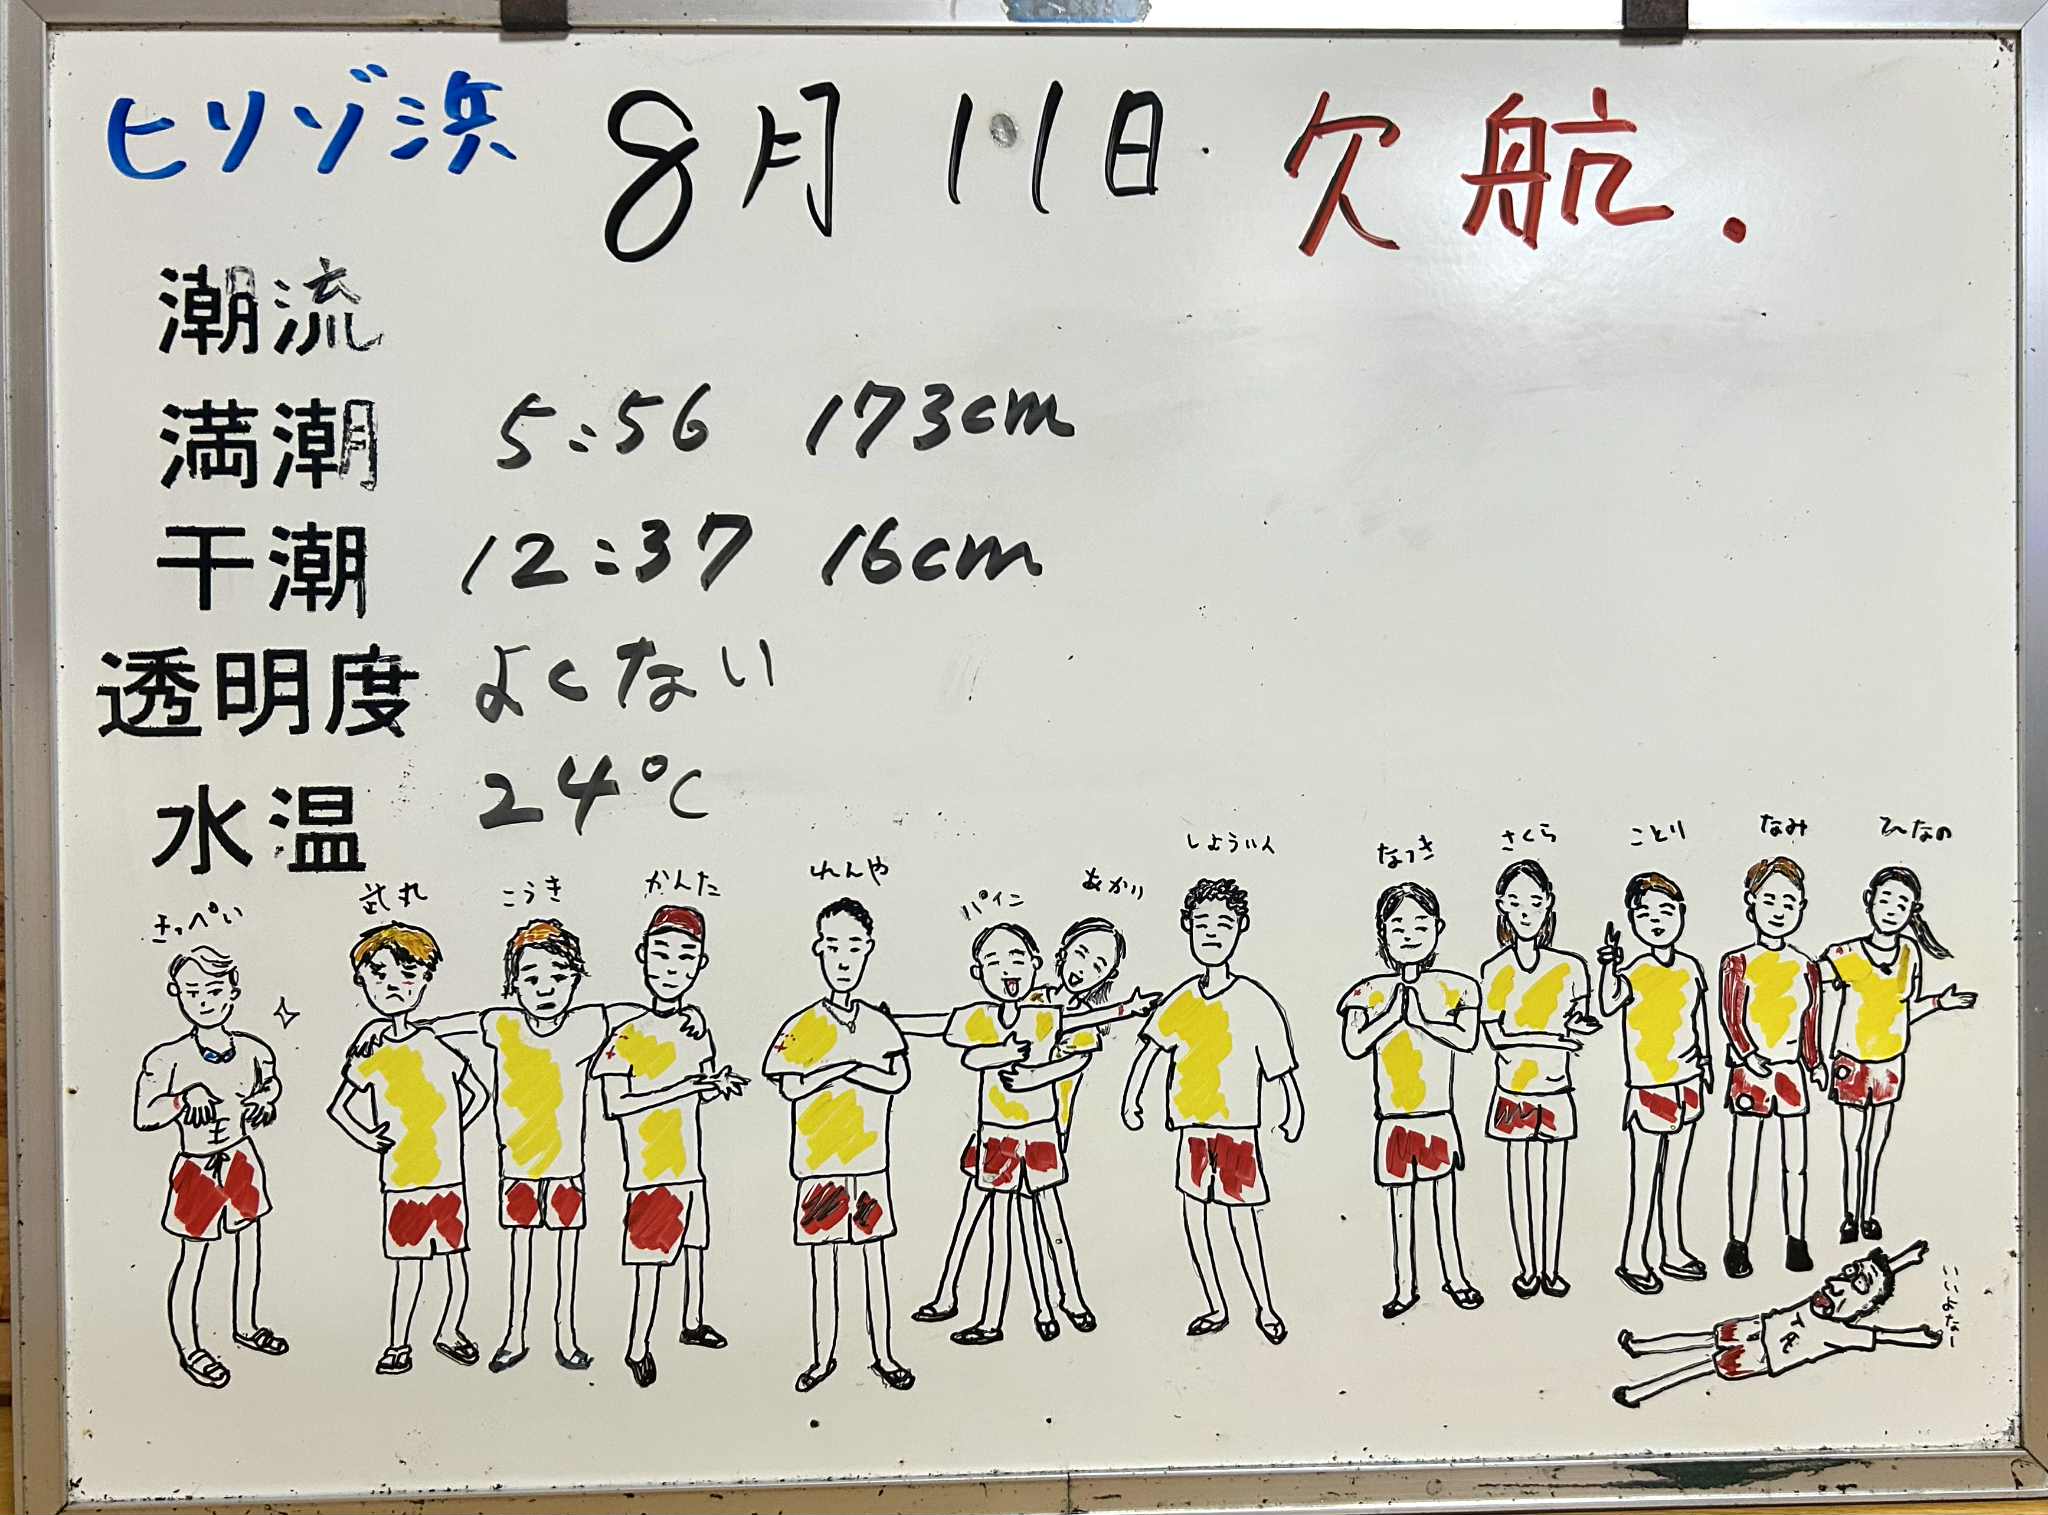 ヒリゾ浜 8月11日 欠航.
潮流
満潮 5:56 173cm
干潮 12:37 16cm
透明度 よくない
水温 24℃
きっぺい
武丸
こうき
かんた
れんや
パイン
あかり
しょういん
なつき
さくら
ことり
なみ
ひなの
いいよなー